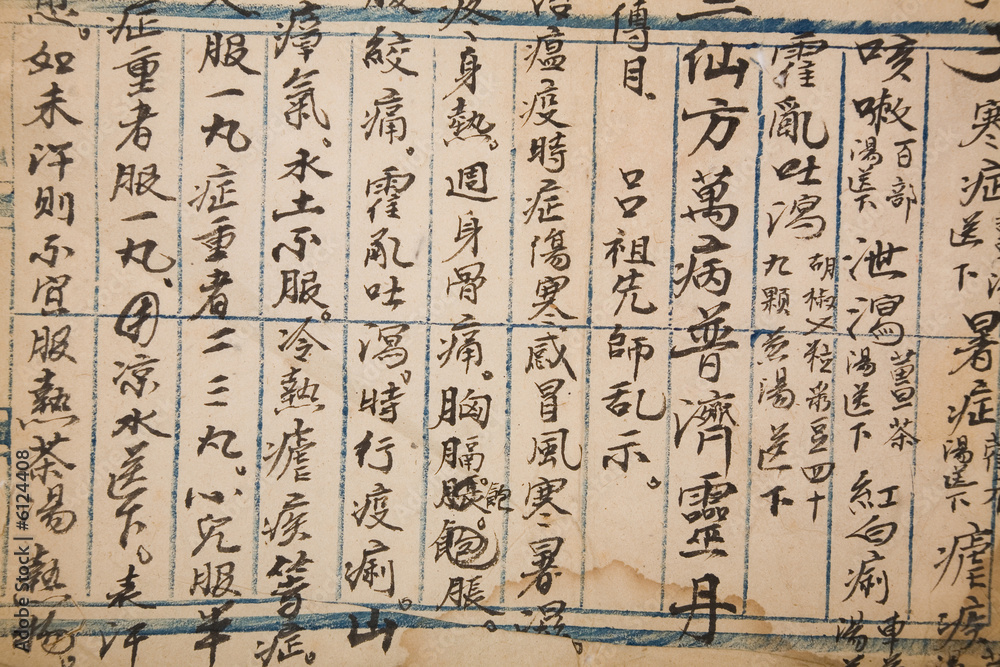 寒症送下暑症湯送下瘧疾
咳嗽百部湯送下泄瀉薑茶湯送下紅白痢
霍亂吐瀉胡椒又粒菉豆四十九顆煎湯送下
二仙方萬病普濟靈丹
傳目呂祖先師乱示。
瘟疫時症傷寒感冒風寒暑濕。
疼身熱。週身骨痛。胸膈脹飽脹。
絞痛。霍乱吐瀉。時行疫痢。山
瘴氣。水土不服。冷熱瘧疾等症。
服一丸症重者二三丸。小兒服半
症重者服一丸。用凉水送下。表汗
如未汗則不宜服熱茶湯熱物。
Adobe Stock | #6124408